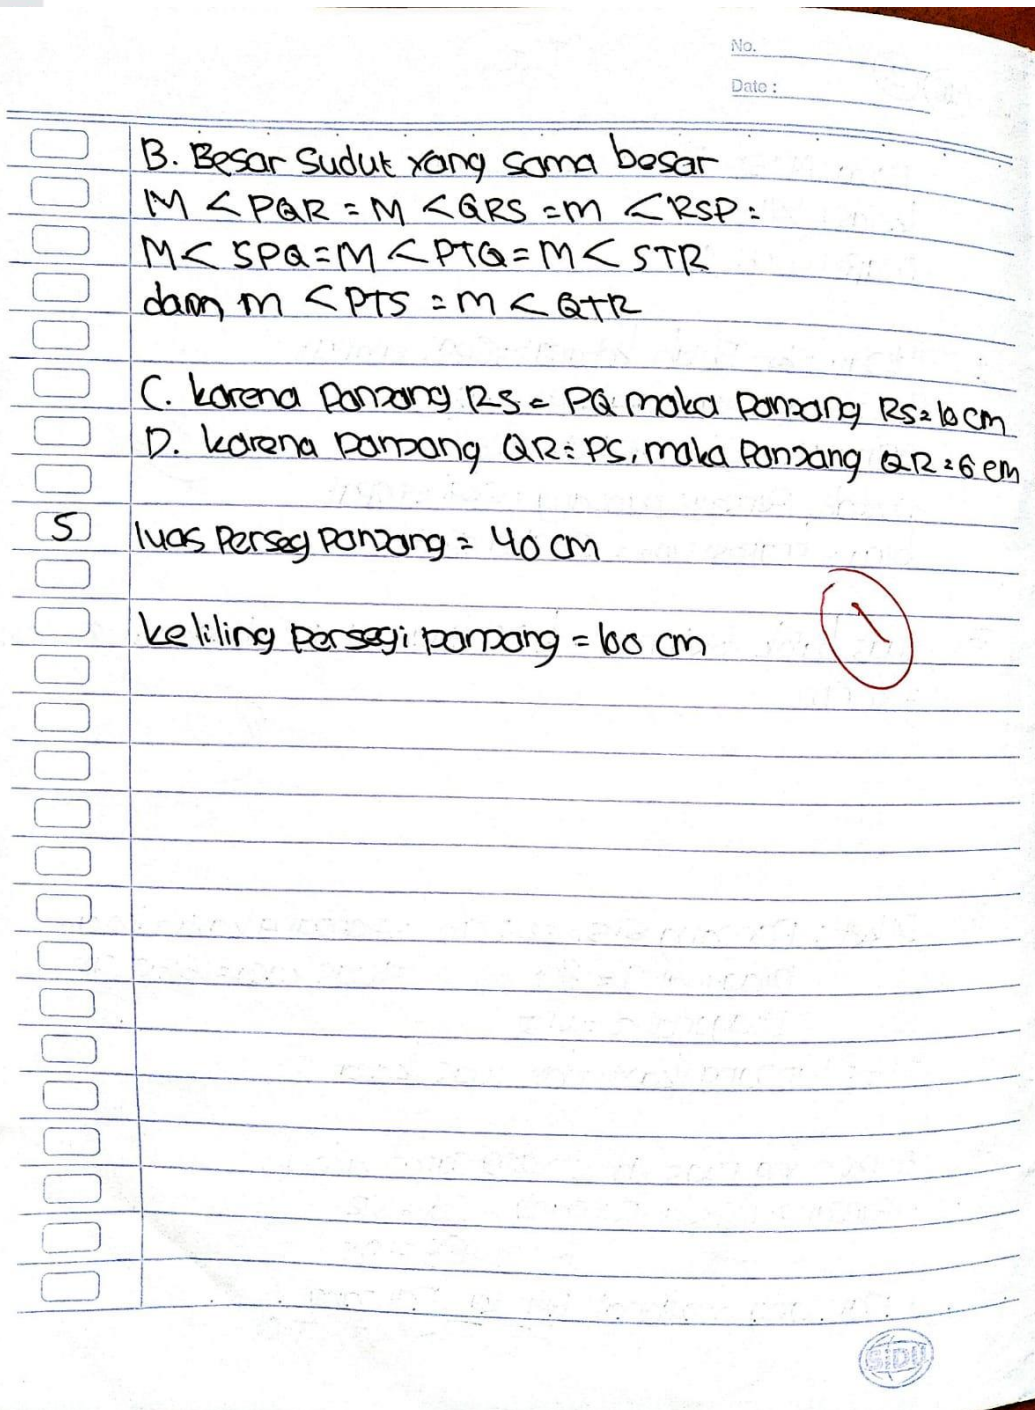 No.
Date :
B. Besar Sudut yang sama besar
M < PQR = M < QRS = m < RSP =
M < SPQ = M < PTQ = M < STR
dan m < PTS = m < QTR
C. karena Panzang RS = PQ maka Panzang RS = 10 cm
D. karena Panzang QR = PS, maka Panzang QR = 6 cm
5 luas Perseg Panzang = 40 cm
1
keliling persegi panzang = 100 cm
SIDU